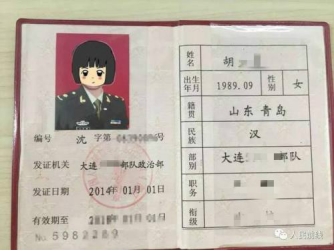 编号 沈 字第 号
发证机关 大连 部队政治部
发证日期 2014年01月01日
有效期至 年01月01日
No 5982289
姓名 胡
出生年月 1989.09 性别 女
籍贯 山东 青岛
民族 汉
部别 大连 部队
职务
衔级
人民前线